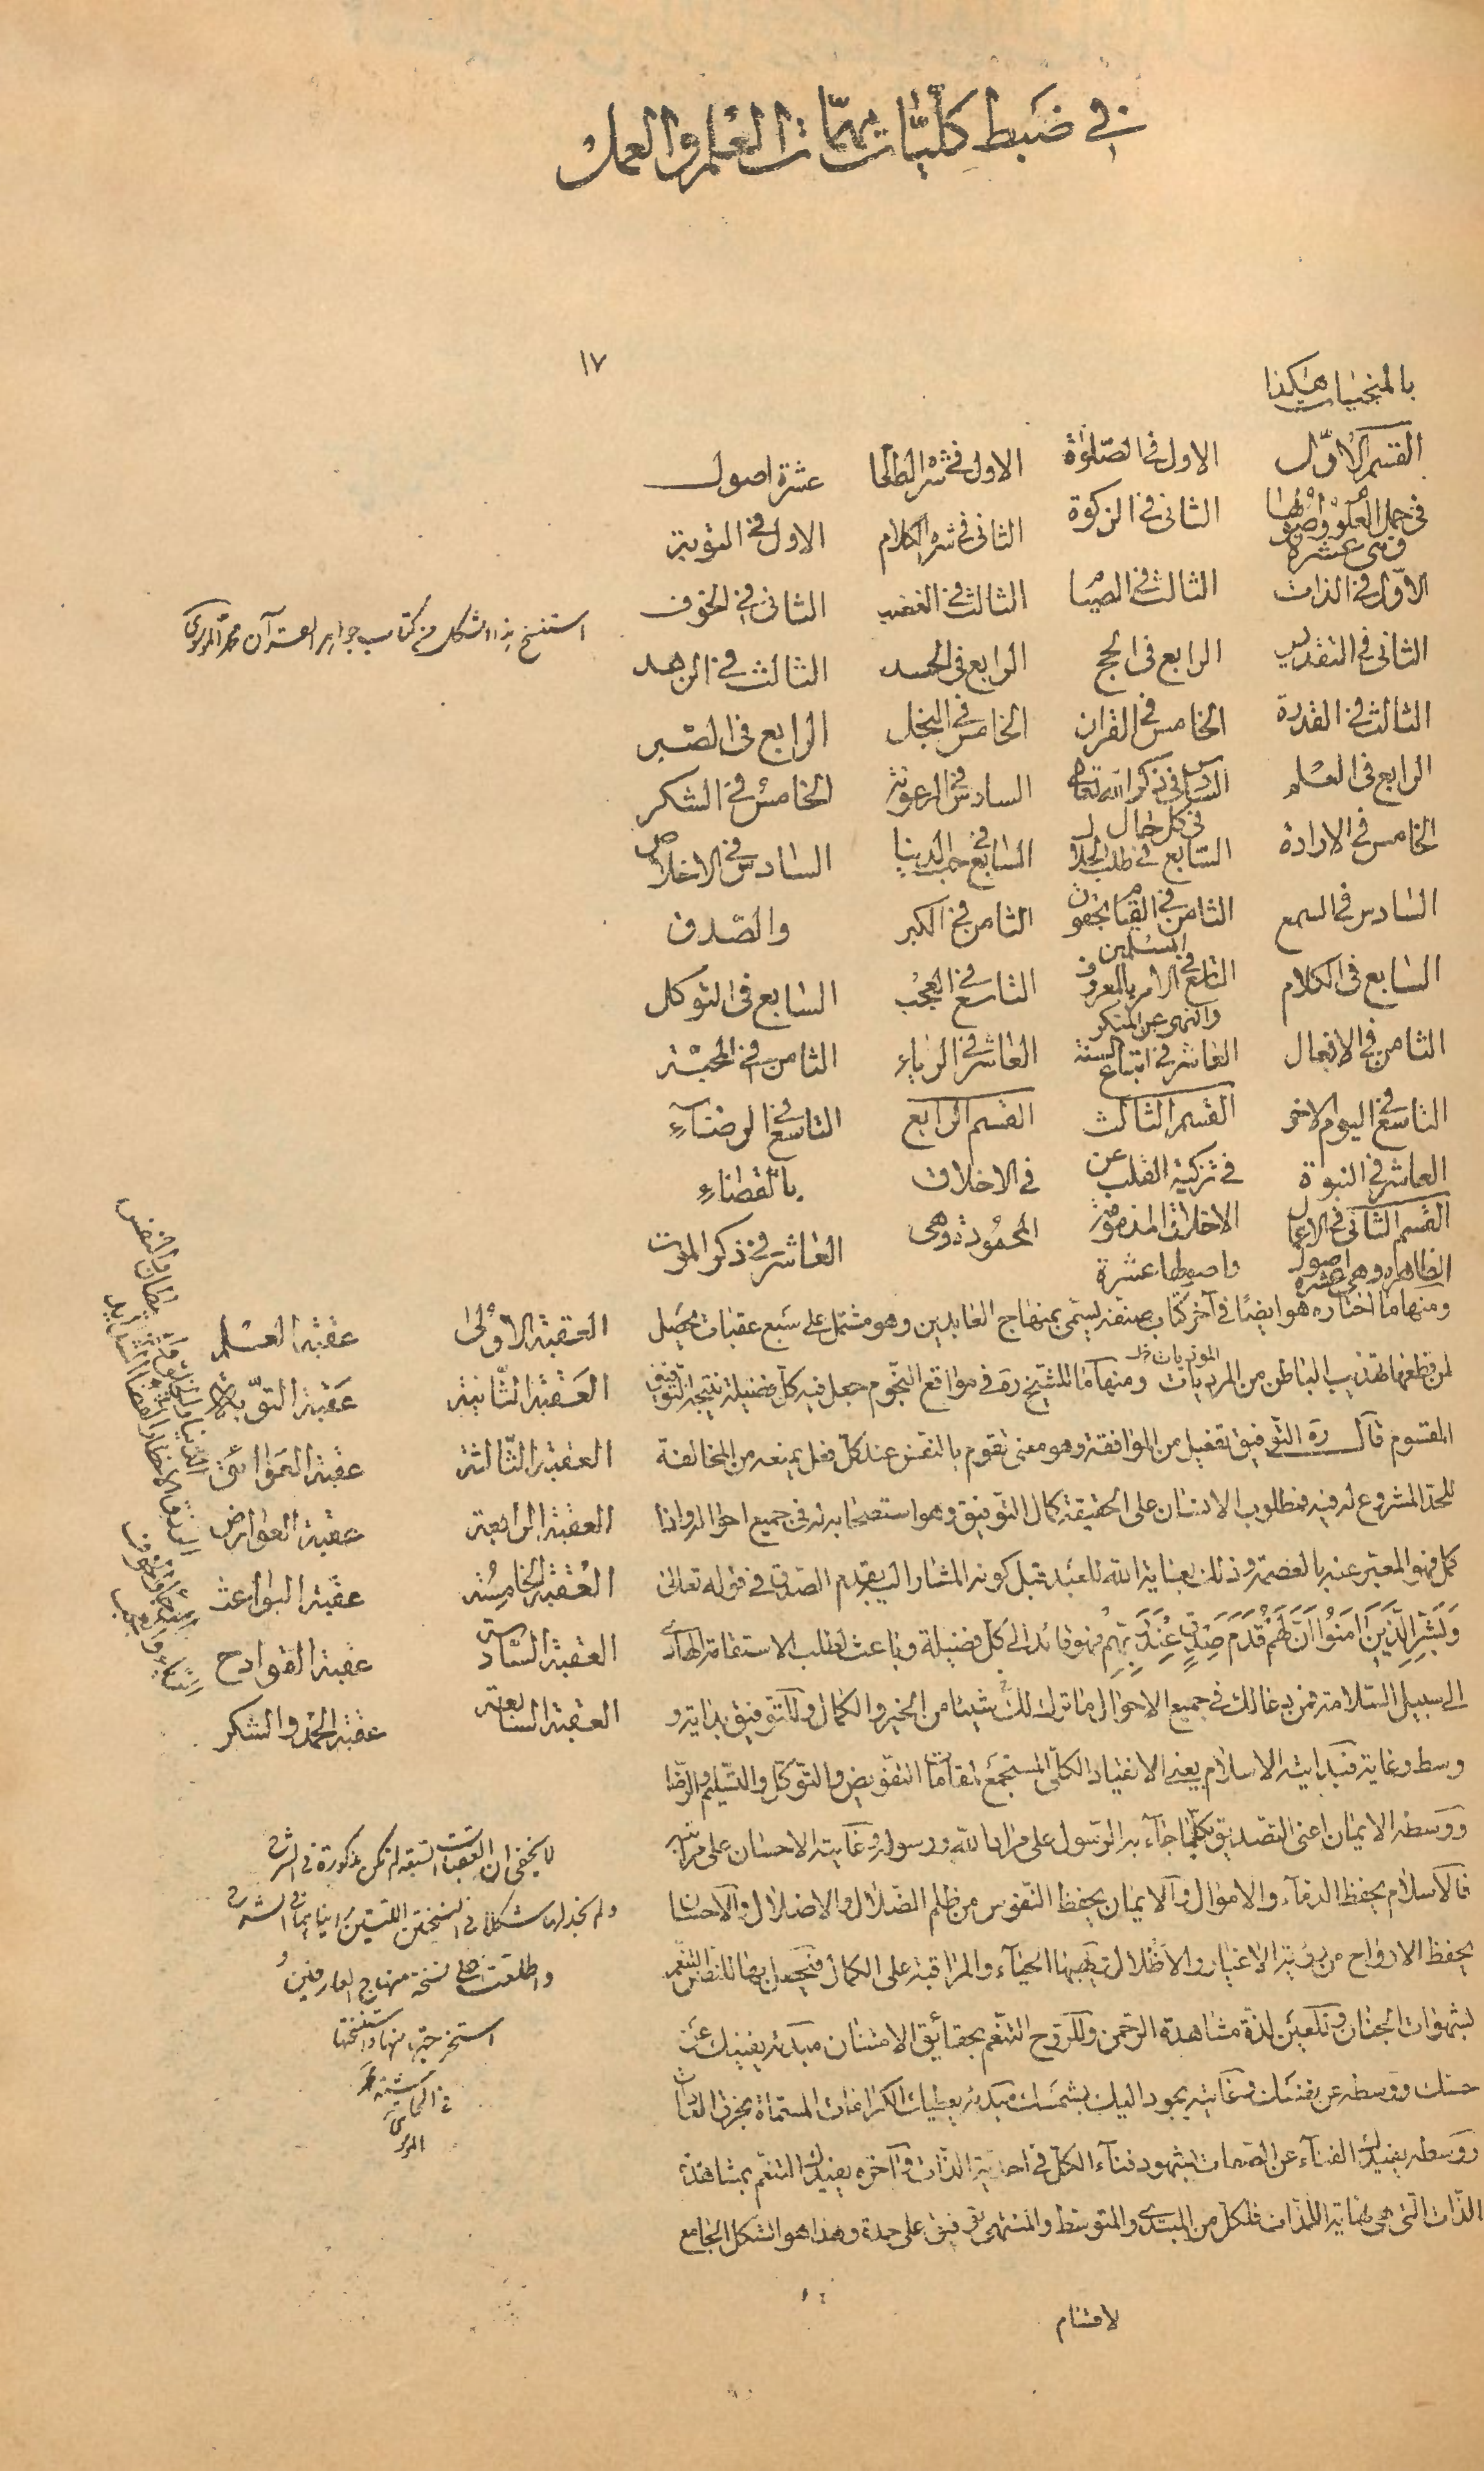 في ضبط كليّات مهمّات العلم والعمل
١٧
بالمنجيات هكذا
القسم الاوّل
في جمل العلوم واصولها
وهى عشرة
الاوّل في الذات
الثانى في التقديس
الثالث في القدرة
الرابع في العلم
الخامس في الارادة
السادس في السمع
السابع في الكلام
الثامن في الافعال
التاسع في اليوم الاخر
العاشر في النبوة
القسم الثانى في الاعمال
الظاهره وهى اصول عشرة
الاول في الصّلوة
الثانى في الزكوة
الثالث في الصيام
الرابع في الحج
الخامس في القران
السادس في ذكر الله تعالى
في كل حال
السّابع في طلب الحلال
الثامن في القيام بحقوق
المسلمين
التاسع في الامر بالمعروف
والنهى عن المنكر
العاشر في اتباع السنة
القسم الثالث
في تزكية القلب عن
الاخلاق المذمومة
واصولها عشرة
الاول في شره الطعام
الثانى في شره الكلام
الثالث في الغضب
الرابع في الحسد
الخامس في البخل
السادس في الرعونة
السابع في حب الدنيا
الثامن في الكبر
التاسع في العجب
العاشر في الرياء
القسم الرابع
في الاخلاق
المحمودة وهى
عشرة اصول
الاول في التوبة
الثانى في الخوف
الثالث في الزهد
الرابع في الصّبر
الخامس في الشكر
السادس في الاخلاص
والصّدق
السّابع في التوكل
الثامن في المحبّة
التاسع في الرضاء
بالقضاء
العاشر في ذكر الموت
استنسخ هذا الشكل من كتاب جواهر القرآن محمد الموسوى
ومنها ما اختاره هو ايضًا في آخر كتاب صنفه يسمى بمنهاج العابدين وهو مشتمل على سبع عقبات يحصل
لمن قطعها تهذيب الباطن من المرديات ومنها ما للشيخ ره في مواقع النجوم جعل فيه كل فضيلة نتيجة التوفيق
الموذيات خل
المقسوم قال ره التوفيق تفعيل من الموافقة وهو معنى يقوم بالنفس عند كل فعل يمنعه من المخالفة
للحدّ المشروع له فيه فمطلوب الانسان على الحقيقة كمال التوفيق وهو استصحابه له في جميع احواله واذا
كمل فهو المعبّر عنه بالعصمة وذلك بعناية الله للعبد قبل كونه المشار اليه بقدم الصدق في قوله تعالى
وَبَشِّرِ الَّذِينَ امَنُوا اَنَّ لَهُمْ قَدَمَ صِدْقٍ عِنْدَ رَبِّهِمْ فهو قائد الى كل فضيلة وباعث لطلب الاستقامة الهادى
الى سبيل السّلامة فمن دعا لك في جميع الاحوال ما ترك لك شيئا من الخير والكمال وللتوفيق بداية و
وسط وغاية فبدايته الاسلام يعنى الانقياد الكلّى المستجمع لمقامات التفويض والتوكّل والتسليم والرضا
ووسطه الايمان اعنى التصديق بكلّما جاء به الرّسول على مراد الله ورسوله وغايته الاحسان على مراتبه
فالاسلام يحفظ الدماء والاموال والايمان يحفظ النّفوس من ظلم الضّلال والاضلال والاحسان
يحفظ الارواح من رؤية الاغيار والاظلال ويهبها الحياء والمراقبة على الكمال فيحصل بها للنفس التنعّم
بشهوات الجنان وللعين لذة مشاهدة الرّحمن وللروح التنعّم بحقائق الامتنان مبدئه يفنيك عن
حسّك ووسطه عن نفسك وغايته يجود اليك بشمسك مبدئه يعطيك الكرامات المسمّاة بخرق العادات
ووسطه يفيدك الفناء عن الصفات بشهود فناء الكلّ في احديّة الذّات وآخره يفيدك التنعّم بمشاهدة
الذّات التى هى نهاية اللذّات فلكل من المبتدى والمتوسّط والمنتهى توفيق على حدة وهذا هو الشكل الجامع
لاقسام
العقبة الاولى عقبة العلم
العقبة الثّانية عقبة التّوبة
العقبة الثّالثة عقبة العوائق
العقبة الرابعة عقبة العوارض
العقبة الخامسة عقبة البواعث
العقبة السّادسة عقبة القوادح
العقبة السّابعة عقبة الحمد والشكر
لا يخفى ان العقبات السبعة لم تكن مذكورة في الشرح
ولم نجد لها شكلا في النسختين اللتين رأيناهما من الشرح
واطلعت على نسخة منهاج العارفين و
استخرجتها منها واستنسختها